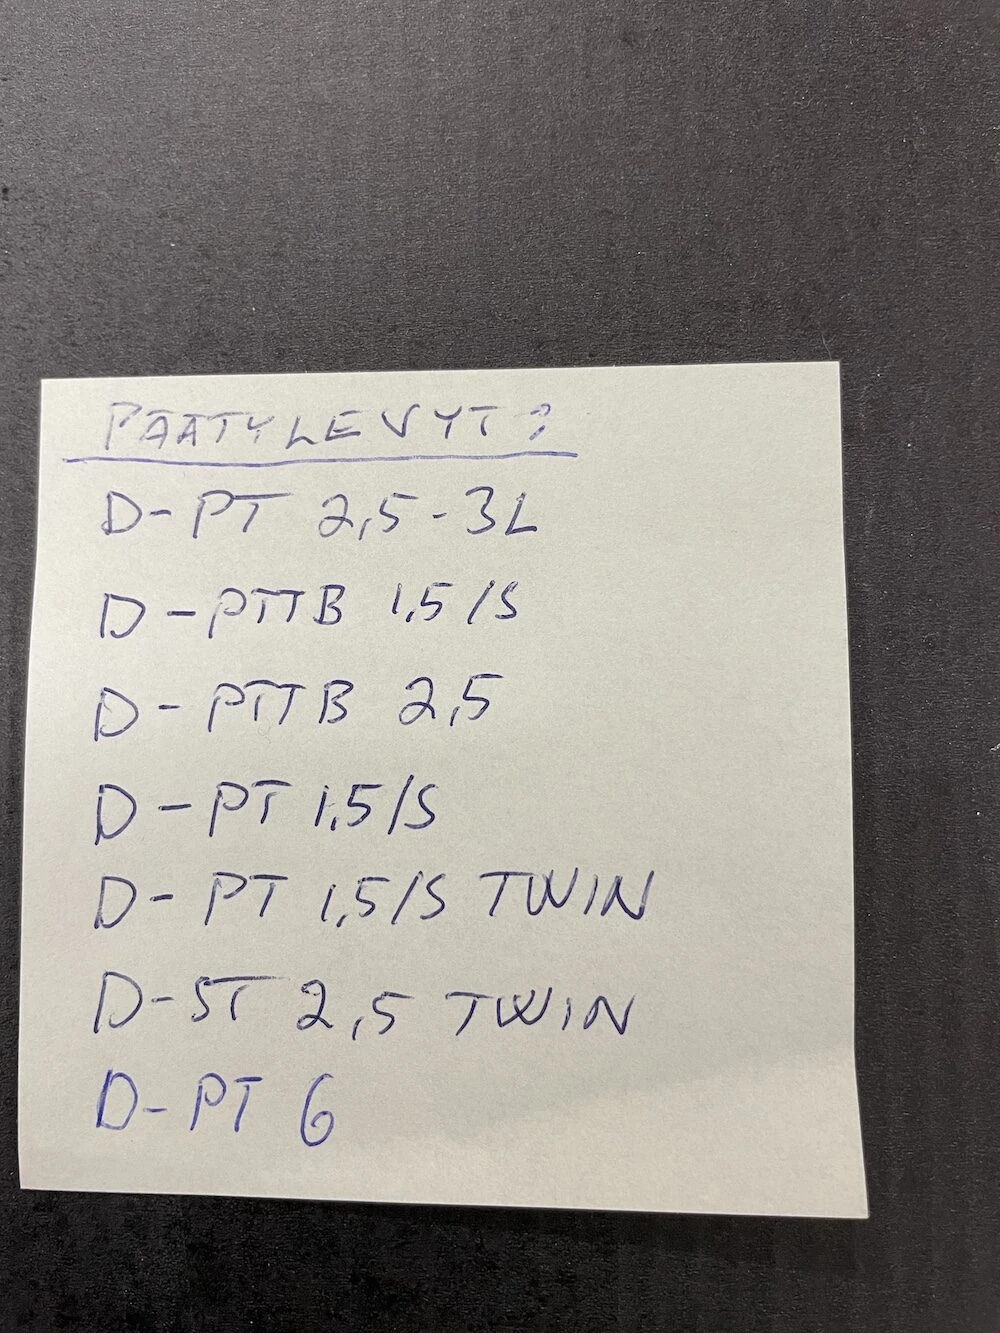 PÄÄTYLEVYT?
D-PT 2,5-3L
D-PTTB 1,5/S
D-PTTB 2,5
D-PT 1,5/S
D-PT 1,5/S TWIN
D-ST 2,5 TWIN
D-PT 6